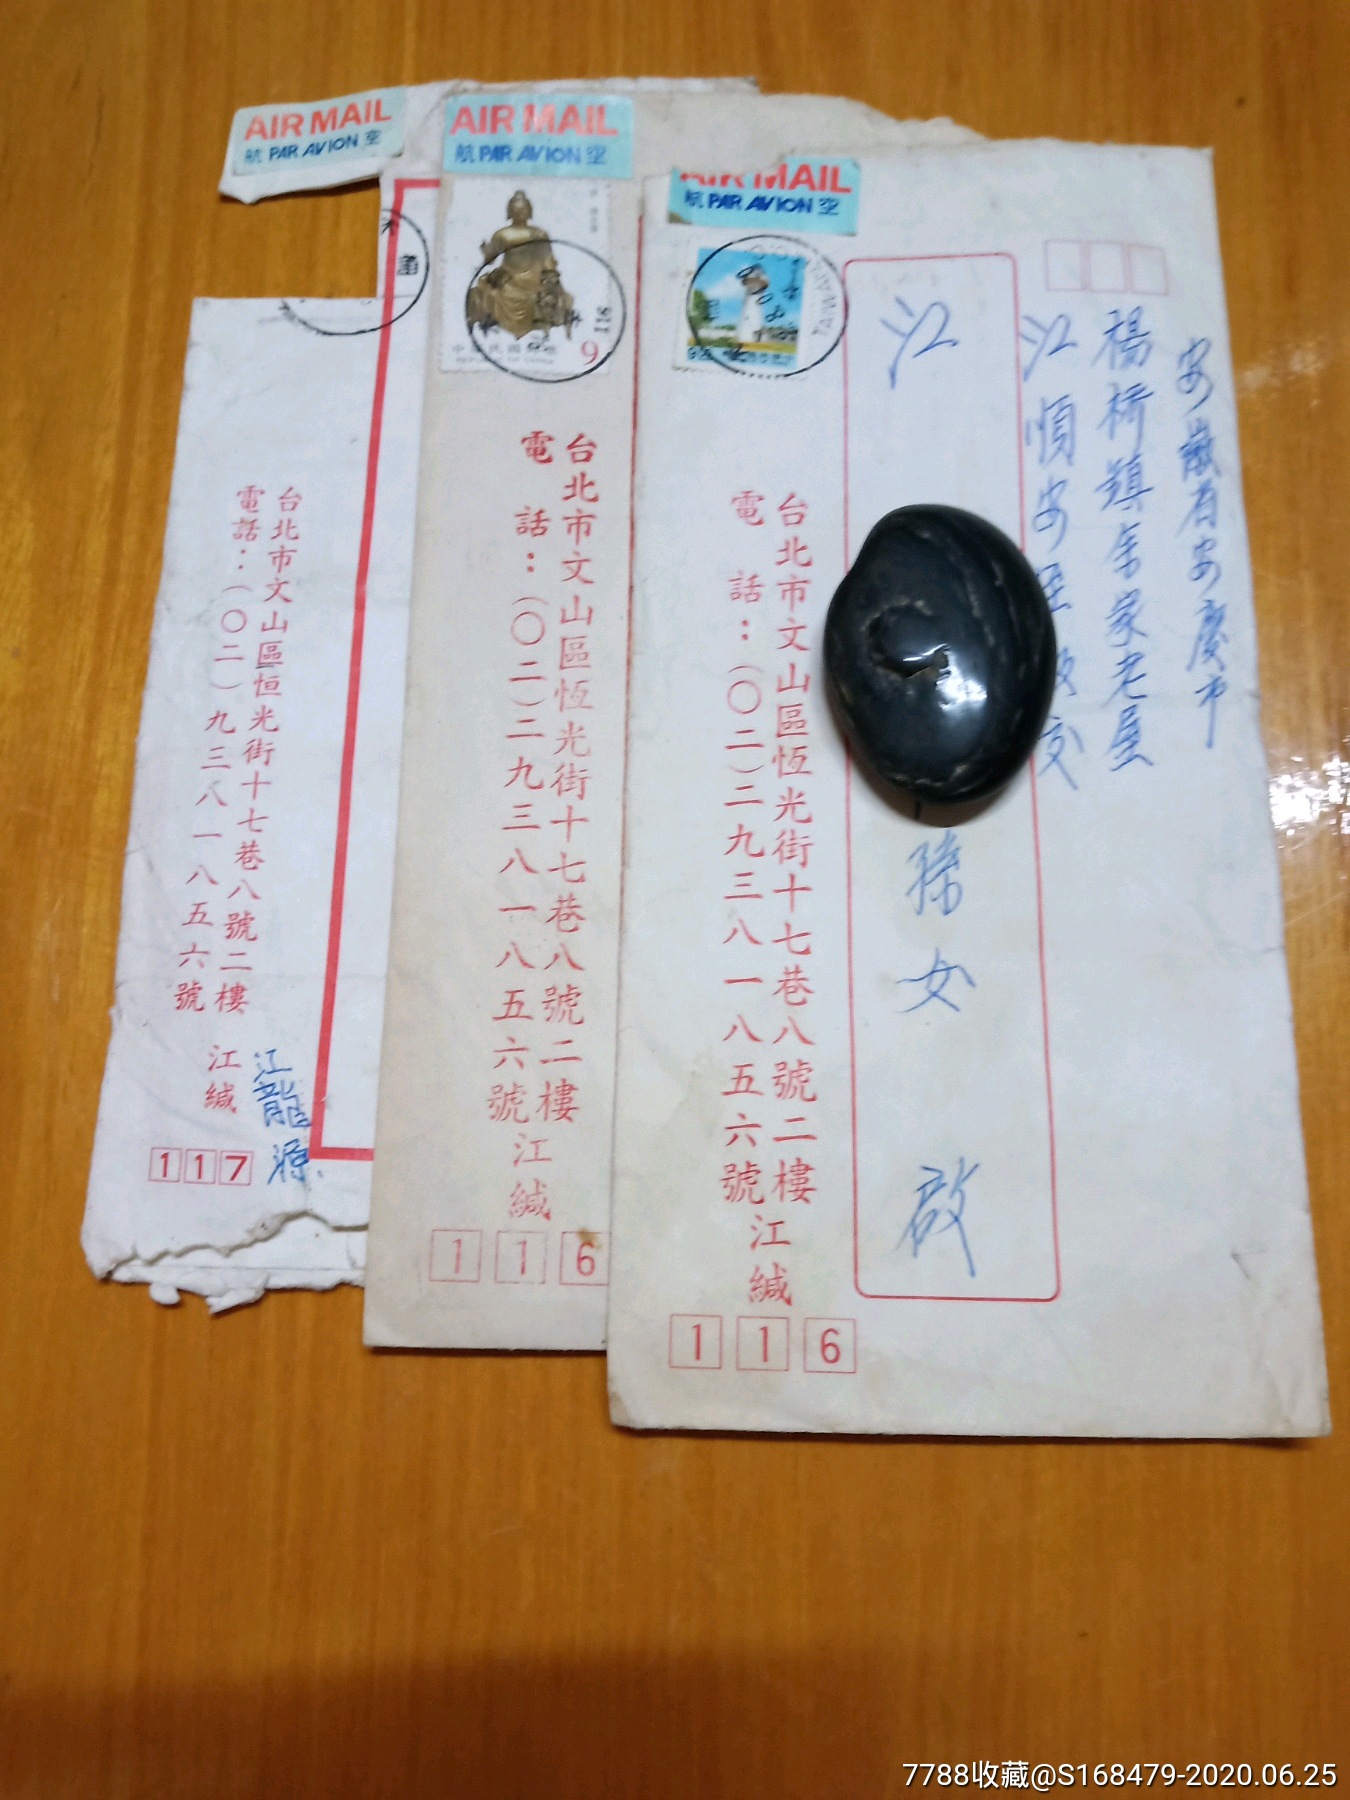 AIR MAIL
航 PAR AVION 空
台北市文山區恒光街十七巷八號二樓
電話：（〇二）九三八一八五六號
江緘
江龍源
117
AIR MAIL
航 PAR AVION 空
9
台北市文山區恆光街十七巷八號二樓
電話：（〇二）二九三八一八五六號
江緘
116
AIR MAIL
航 PAR AVION 空
TAIWAN
安徽省安慶市
楊橋鎮余家老屋
江順安
江
女 啟
台北市文山區恆光街十七巷八號二樓
電話：（〇二）二九三八一八五六號
江緘
116
7788收藏@S168479-2020.06.25